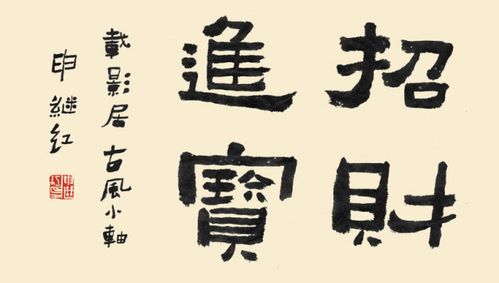 招財
進寶
載影居古風小軸
申继红